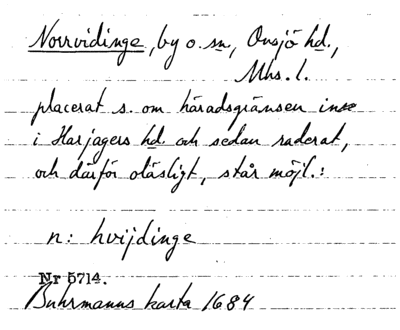 Norrvidinge, by o. sn, Onsjö hd.,
Mhs. l.
placerat s. om häradsgränsen inne
i Harjagers hd. och sedan raderat,
och därför oläsligt, står möjl.:
n: hvijdinge
Nr 5714.
Buhrmanns karta 1684